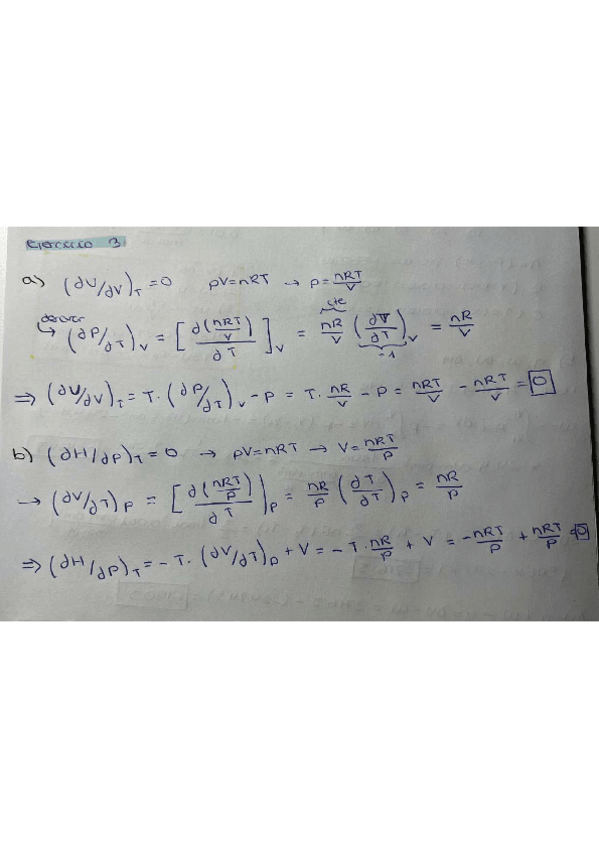 Ejercicio 3
a) (∂U/∂V)_T = 0 pV = nRT → P = nRT/V
derivar ↳ (∂P/∂T)_V = [∂(nRT/V)/∂T]_V = nR/V (cte) (∂T/∂T)_V (=1) = nR/V
⇒ (∂U/∂V)_T = T · (∂P/∂T)_V - P = T · nR/V - P = nRT/V - nRT/V = 0
b) (∂H/∂P)_T = 0 → pV = nRT → V = nRT/P
→ (∂V/∂T)_P = [∂(nRT/P)/∂T]_P = nR/P (∂T/∂T)_P = nR/P
⇒ (∂H/∂P)_T = -T · (∂V/∂T)_P + V = -T · nR/P + V = -nRT/P + nRT/P = 0